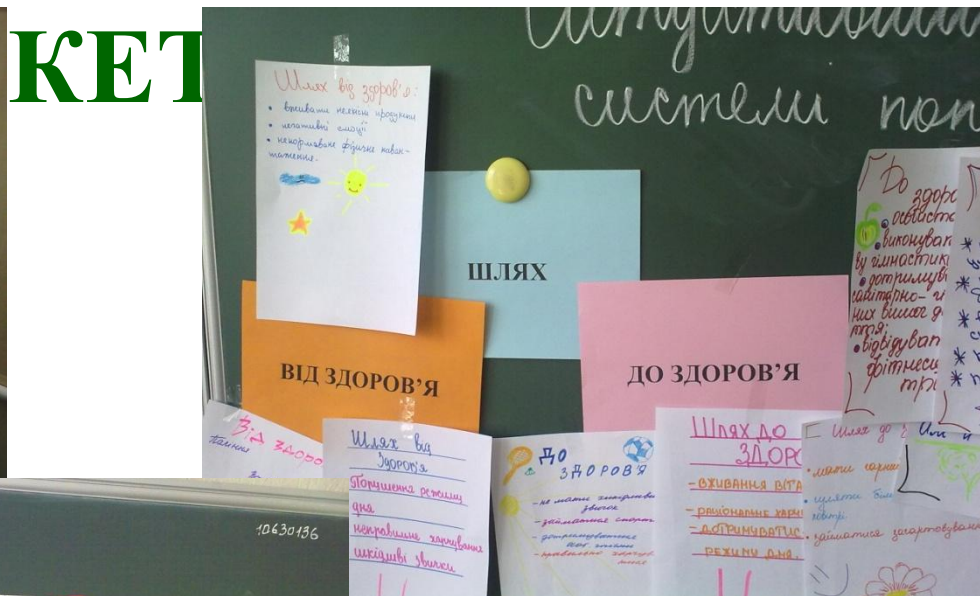 КЕТ
системи
Шлях від здоров'я:
• вживати неякісні продукти
• негативні емоції
• ненормоване фізичне наван-
таження.
ШЛЯХ
ВІД ЗДОРОВ’Я
ДО ЗДОРОВ’Я
До
здоро
• виконуван
ву гімнастик
• дотримув
санітарно- гі
• відвідуват
фітнес
Від здоро
Шлях від
Здоров'я
Порушення режиму
дня
неправильне харчування
шкідливі звички
ДО
ЗДОРОВ'Я
- не мати шкідливи
звичок
- займатися спорт
- дотримуватися
Шлях ДО
ЗДОРО
- ВЖИВАННЯ ВІТА
- РАЦІОНАЛЬНЕ ХАРЧ
- ДОТРИМУВАТИС
РЕЖИМУ ДНЯ.
Шлях до з
• мати гарни
• гуляти біл
повітрі.
• займатися загартовуван
10630136